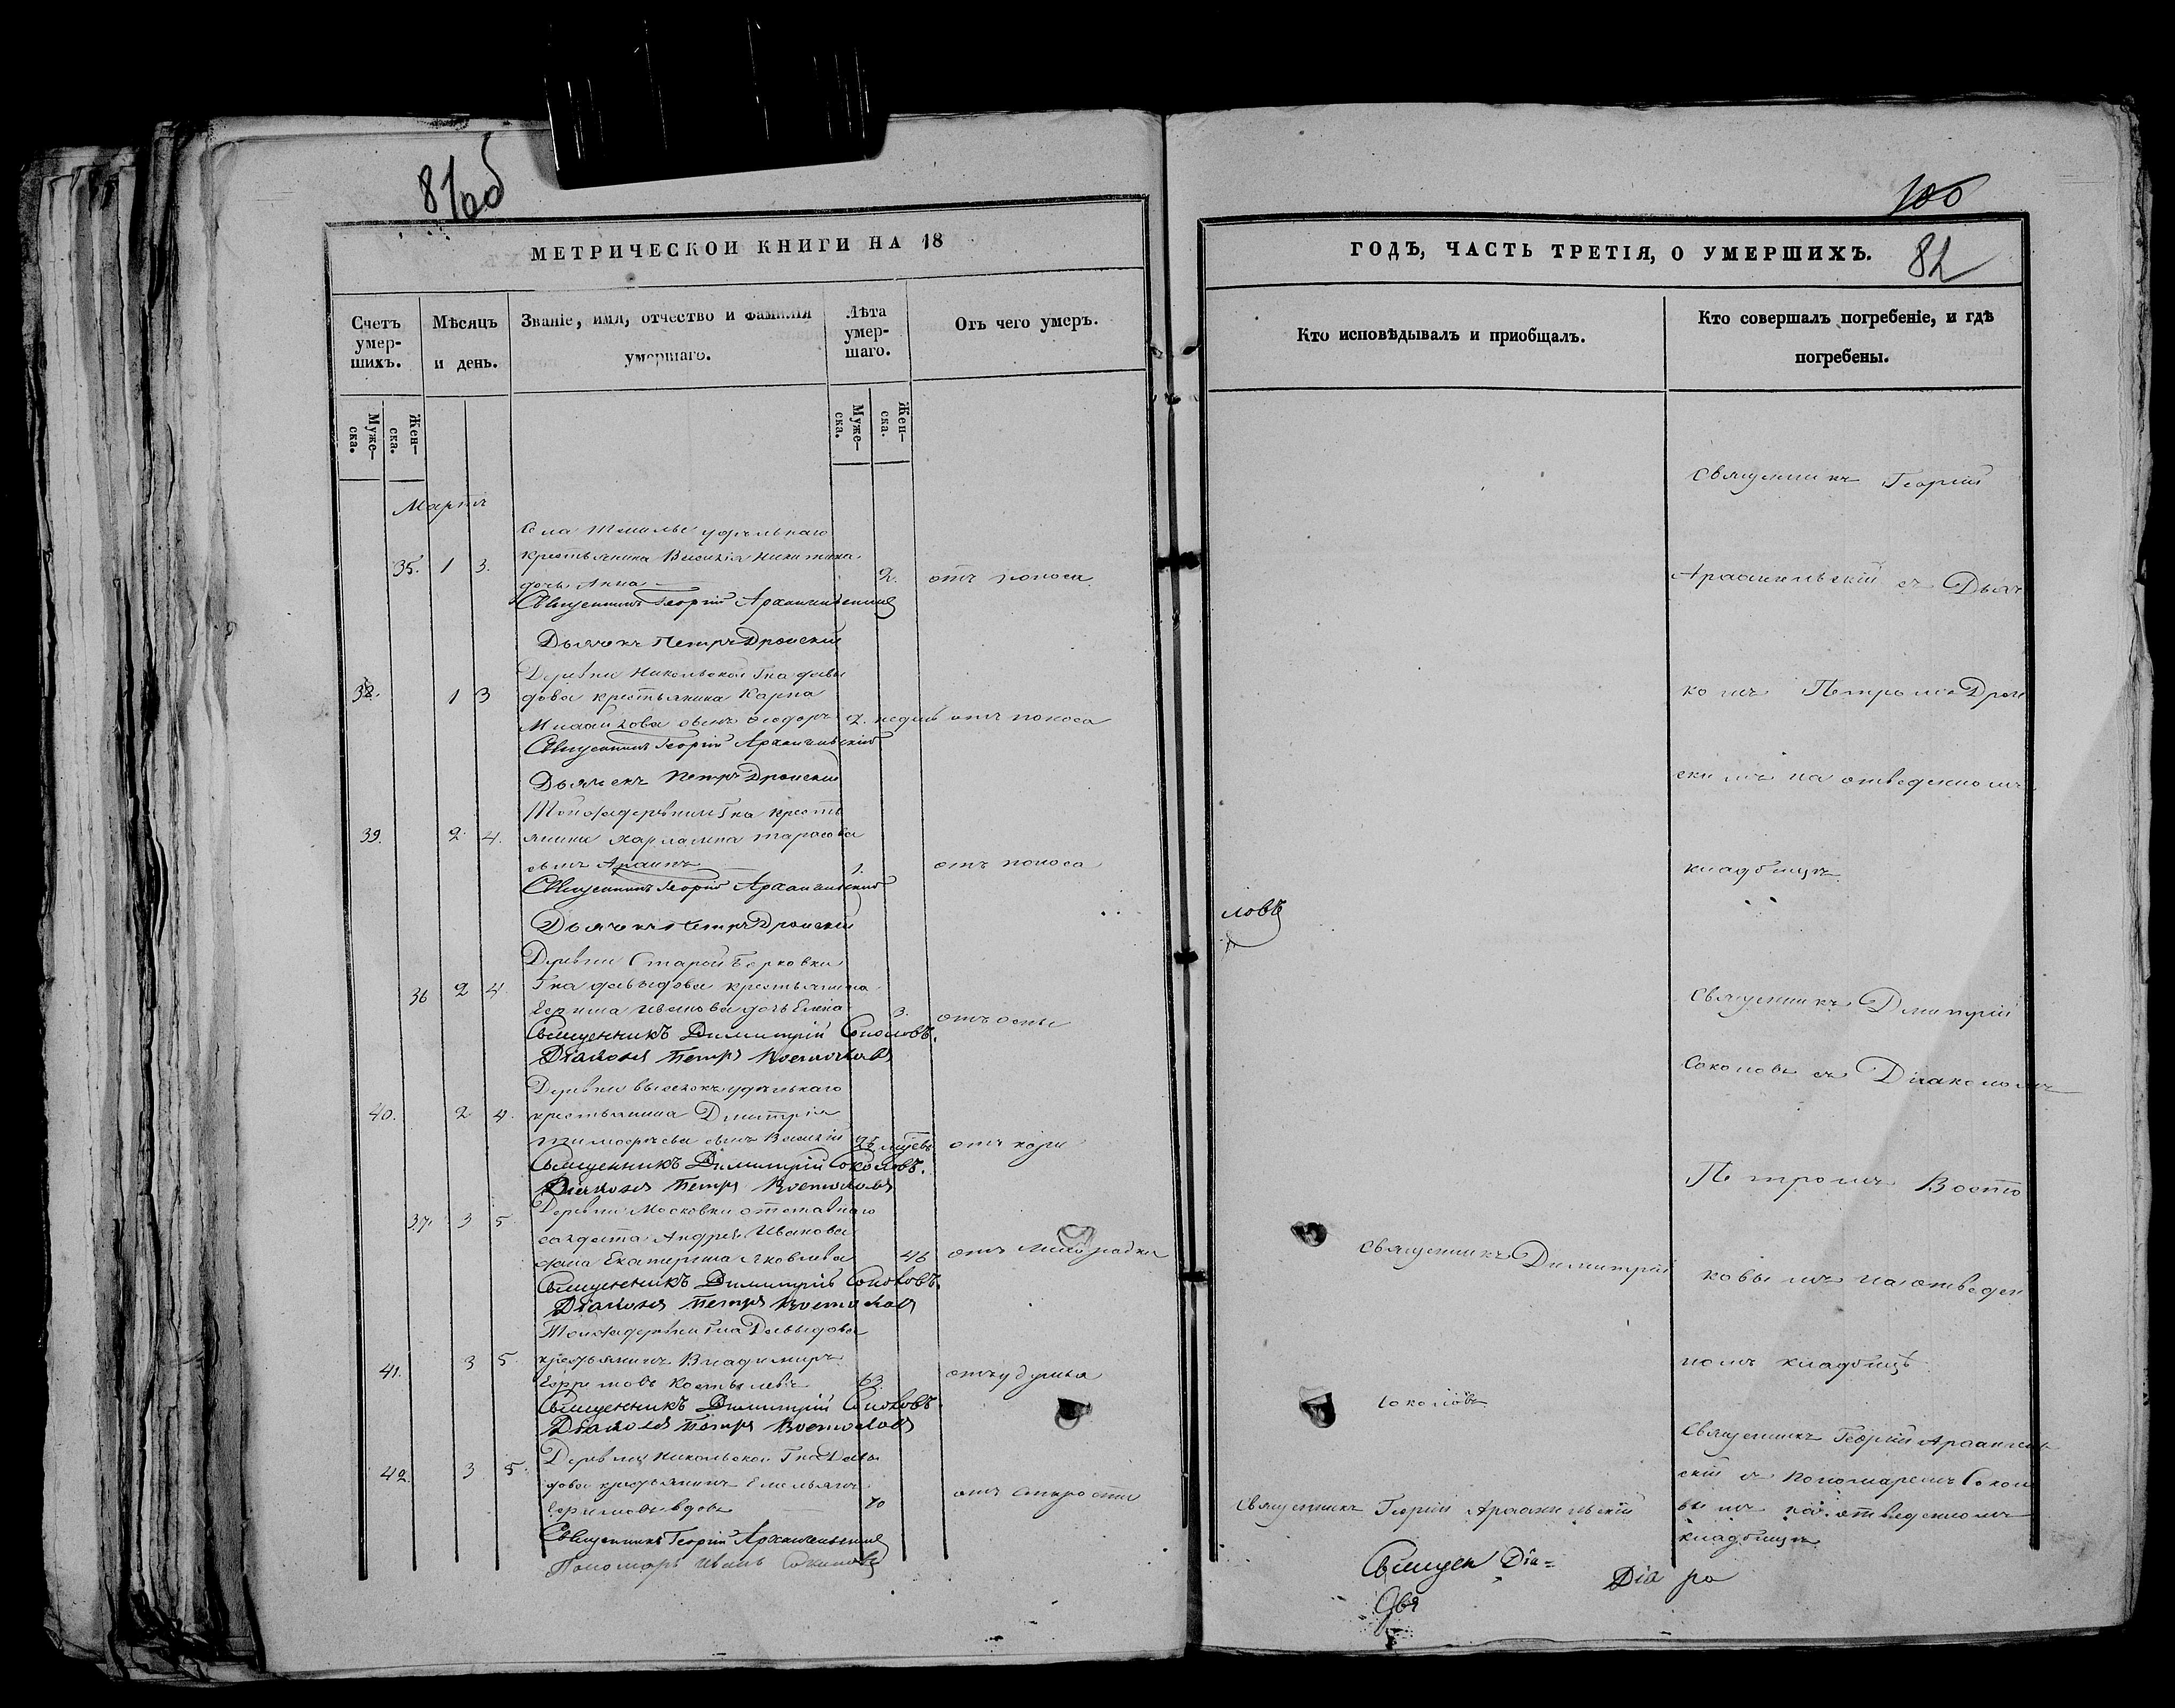 81об
МЕТРИЧЕСКОЙ КНИГИ НА 18
Счетъ умер-шихъ.
Мѣсяцъ и день.
Званіе, имя, отчество и фамилія умершаго.
Лѣта умер-шаго.
Отъ чего умеръ.
Муже-ска.
Жен-ска.
Муже-ска.
Жен-ска.
Мартъ
Села удѣльнаго
35. 1 3. крестьянина Василія Никитина
дочь Анна 2. отъ поноса
Священникъ Георгій Архангельскій
Дьячекъ Петръ Дронскій
Деревни Никольской Гна Давы
38. 1 3 дова крестьянина Карпа
Михайлова сынъ Ѳеодоръ 2. недѣль отъ поноса
Священникъ Георгій Архангельскій
Дьячекъ Петръ Дронскій
Тойже деревни Гна кресть
39. 2 4. янина Харлампа Тарасова
сынъ 1. отъ поноса
Священникъ Георгій Архангельскій
Дьячекъ Петръ Дронскій
Деревни Старой
36 2 4. Гна Давыдова крестьянина
Иванова дочь Елена 3. отъ оспы
Священникъ Димитрій Соколовъ.
Діаконъ Петръ Востоковъ
Деревни удѣльнаго
40. 2 4. крестьянина Дмитрія
Тимофѣева сынъ Василій отъ кори
Священникъ Димитрій Соколовъ.
Діаконъ Петръ Востоковъ
Деревни Московки отставнаго
37. 3 5 солдата Андрея Иванова
жена Екатерина Яковлева 46 отъ лихорадки
Священникъ Димитрій Соколовъ.
Діаконъ Петръ Востоковъ
Тойже деревни Гна Давыдова
41. 3 5. крестьянинъ Владимиръ
63. отъ удушья
Священникъ Димитрій Соколовъ
Діаконъ Петръ Востоковъ
Деревни Никольской Гна Давы
42. 3 5. дова крестьянинъ Емельянъ
Ефимовъ вдовъ 70 отъ старости
Священникъ Георгій Архангельскій
Пономарь Иванъ Соколовъ
100
ГОДЪ, ЧАСТЬ ТРЕТІЯ, О УМЕРШИХЪ. 82
Кто исповѣдывалъ и пріобщалъ.
Кто совершалъ погребеніе, и гдѣ погребены.
Священникъ Георгій
Архангельскій съ Дьяч
комъ Петромъ Дрон
скимъ на отведенномъ
кладбищѣ.
ловъ
Священникъ Дмитрій
Соколовъ съ Діакономъ
Петромъ Восто
Священникъ Димитрій
ковымъ на отведен
номъ кладбищѣ
Соколовъ
Священникъ Георгій Архангель
скій съ Пономаремъ Соколо
Священникъ Георгій Архангельскій
вымъ на отведенномъ
кладбищѣ
Священ Діа=
Діа ра